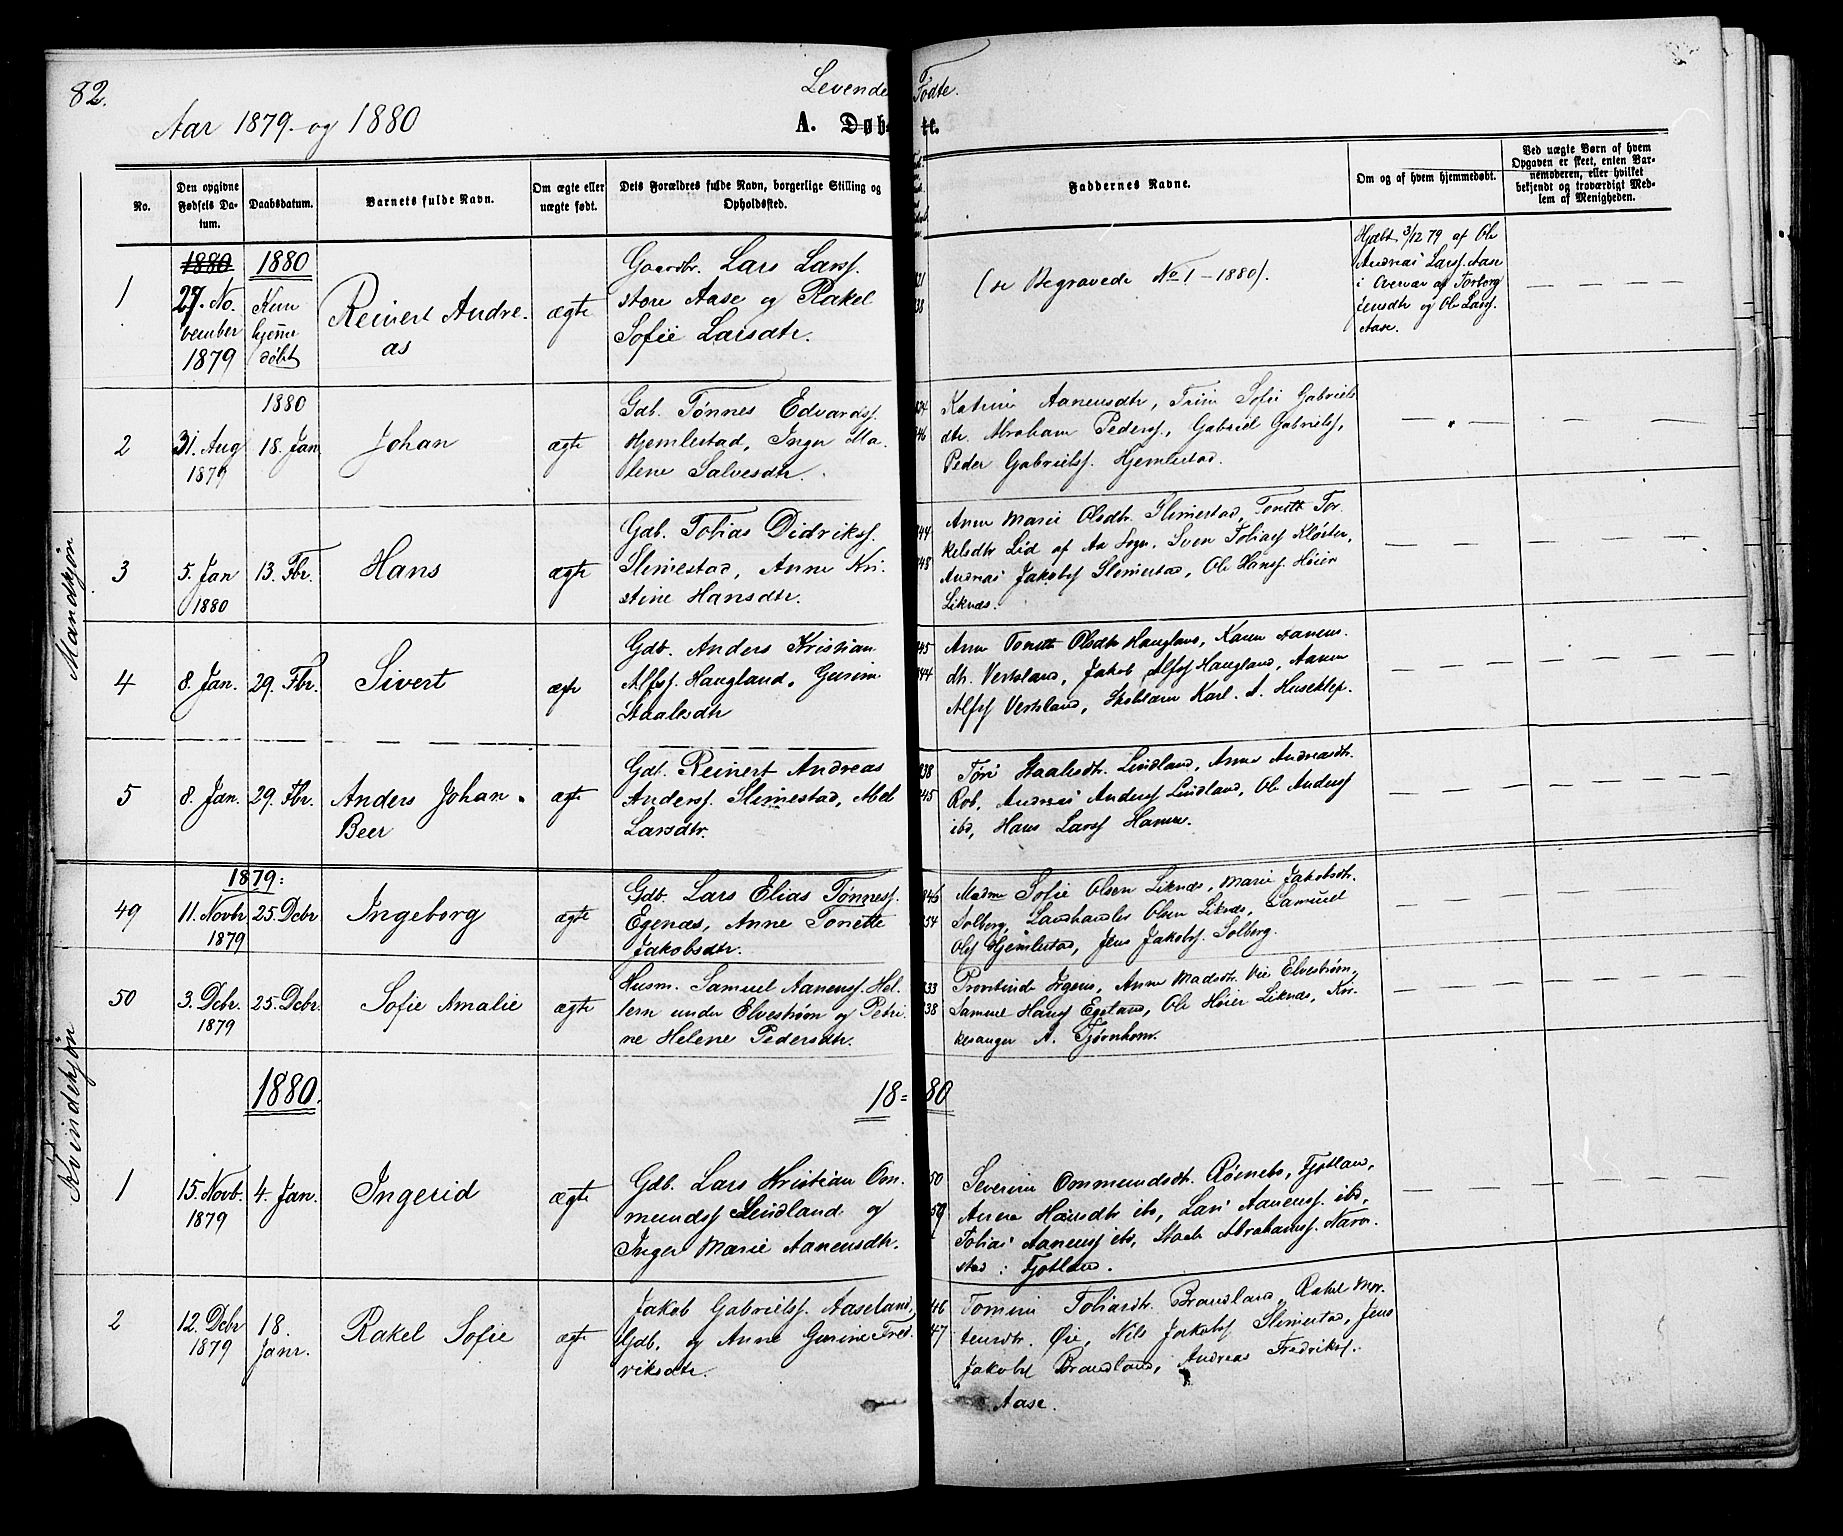 82.
Levende Fødte.
Aar 1879 og 1880
A. Døbte.
No.
Den opgivne
Fødsels Da-
tum.
Daabsdatum.
Barnets fulde Navn.
Om ægte eller
uægte født.
Dets Forældres fulde Navn, borgerlige Stilling og
Opholdssted.
Faddernes Navne.
Om og af hvem hjemmedøbt.
Ved uægte Børn af hvem
Opgaven er skeet, enten Bar-
nemoderen, eller hvilket
bekjendt og troværdigt Med-
lem af Menigheden.
Mandkjøn
1
1880
27. No-
vember
1879
1880
Kun
hjemme
døbt
Reinert Andre-
as
ægte
Gaardbr. Lars Larss.
store Aase og Rakel
Sofie Larsdtr.
21
38
(se Begravede No 1 - 1880).
Hjdbt 3/12 79 af Ole
Andreas Larss. Aase
i Overvær af Torborg
og Ole Larss.
Aase.
2
31. Aug
1879
1880
18. Jan
Johan
ægte
Gdb. Tønnes Edvardss.
Hjemlestad, Inger Ma-
lene Salvesdtr.
34
46
Katrine Aanensdtr, Trine Sofie Gabriels
dtr. Abraham Pederss., Gabriel Gabrielss,
Peder Gabrielss. Hjemlestad.
3
5. Jan
1880
13. Fbr.
Hans
ægte
Gdb. Tobias Didrikss.
Slimestad, Anne Kri-
stine Hansdtr.
44
48
Anne Marie Olsdtr. Slimestad, Tonette Tor-
kelsdtr Lid af Aa Sogn, Sven Tobiass Kloster,
Andreas Jakobss Slimestad, Ole Hanss. Høier
Liknæs.
4
8. Jan.
29. Fbr.
Sivert
ægte
Gdb. Anders Kristian
Alfss. Haugland, Gurine
Staalesdtr
45
44
Anne Tonette Olsdtr Haugland, Karen Aanens-
dtr. Vertsland, Jakob Alfss Haugland, Aanen
Alfss Vertsland, Skolelærer Karl. A. Huseklep.
5
8. Jan.
29. Fbr.
Anders Johan
Beer
ægte
Gdb. Reinert Andreas
Anderss. Slimestad, Abel
Larsdtr.
38
45
Tøri Staalesdtr. Lindland, Anne Andreasdtr.
Rob, Andreas Anderss Lindland, Ole Anderss
ibd, Hans Larss Hamre.
Kvindekjøn
1879:
49
11. Novbr
1879
25. Dcbr
Ingeborg
ægte
Gdb. Lars Elias Tønness.
Egenæs, Anne Tonette
Jakobsdtr.
846
54
Madm Sofie Olsen Liknæs, Marie Jakobsdtr.
Solberg, Landhandler Olsen Liknæs, Samuel
Olss Hjemlestad, Jens Jakobss. Solberg.
50
3. Dcbr.
1879
25. Dcbr.
Sofie Amalie
ægte
Husm. Samuel Aanenss. Hel-
lern under Elvestrøm og Petri-
ne Helene Pedersdtr.
33
38
Prorstinde Irgens, Anne Madsdtr. Vee Elvestrøm,
Samuel Hanss Egeland, Ole Høier Liknæs, Kir-
kesanger A. Fjørnholm.
1880.
18=80
1
15. Novb.
1879
4. Jan.
Ingerid
ægte
Gdb. Lars Kristian Om-
mundss Lindland og
Inger Marie Aanensdtr.
50
59
Severine Ommundsdtr. Røinebo, Fjotland,
Anne Hansdtr ibd, Lars Aanenss. ibd,
Tobias Aanenss ibd, Staale Abrahamss. Narve-
stad i Fjotland.
2
12. Dcbr
1879
18.
Janr.
Rakel Sofie
ægte
Jakob Gabrielss. Aaseland,
Gdb. og Anne Gurine Fred-
riksdtr.
46
47
Tomine Tobiasdtr. Brandland, Rakel Mor-
tensdtr. Øie, Nils Jakobss Slimestad, Jens
Jakobss Brandland, Andreas Fredrikss.
Aase.